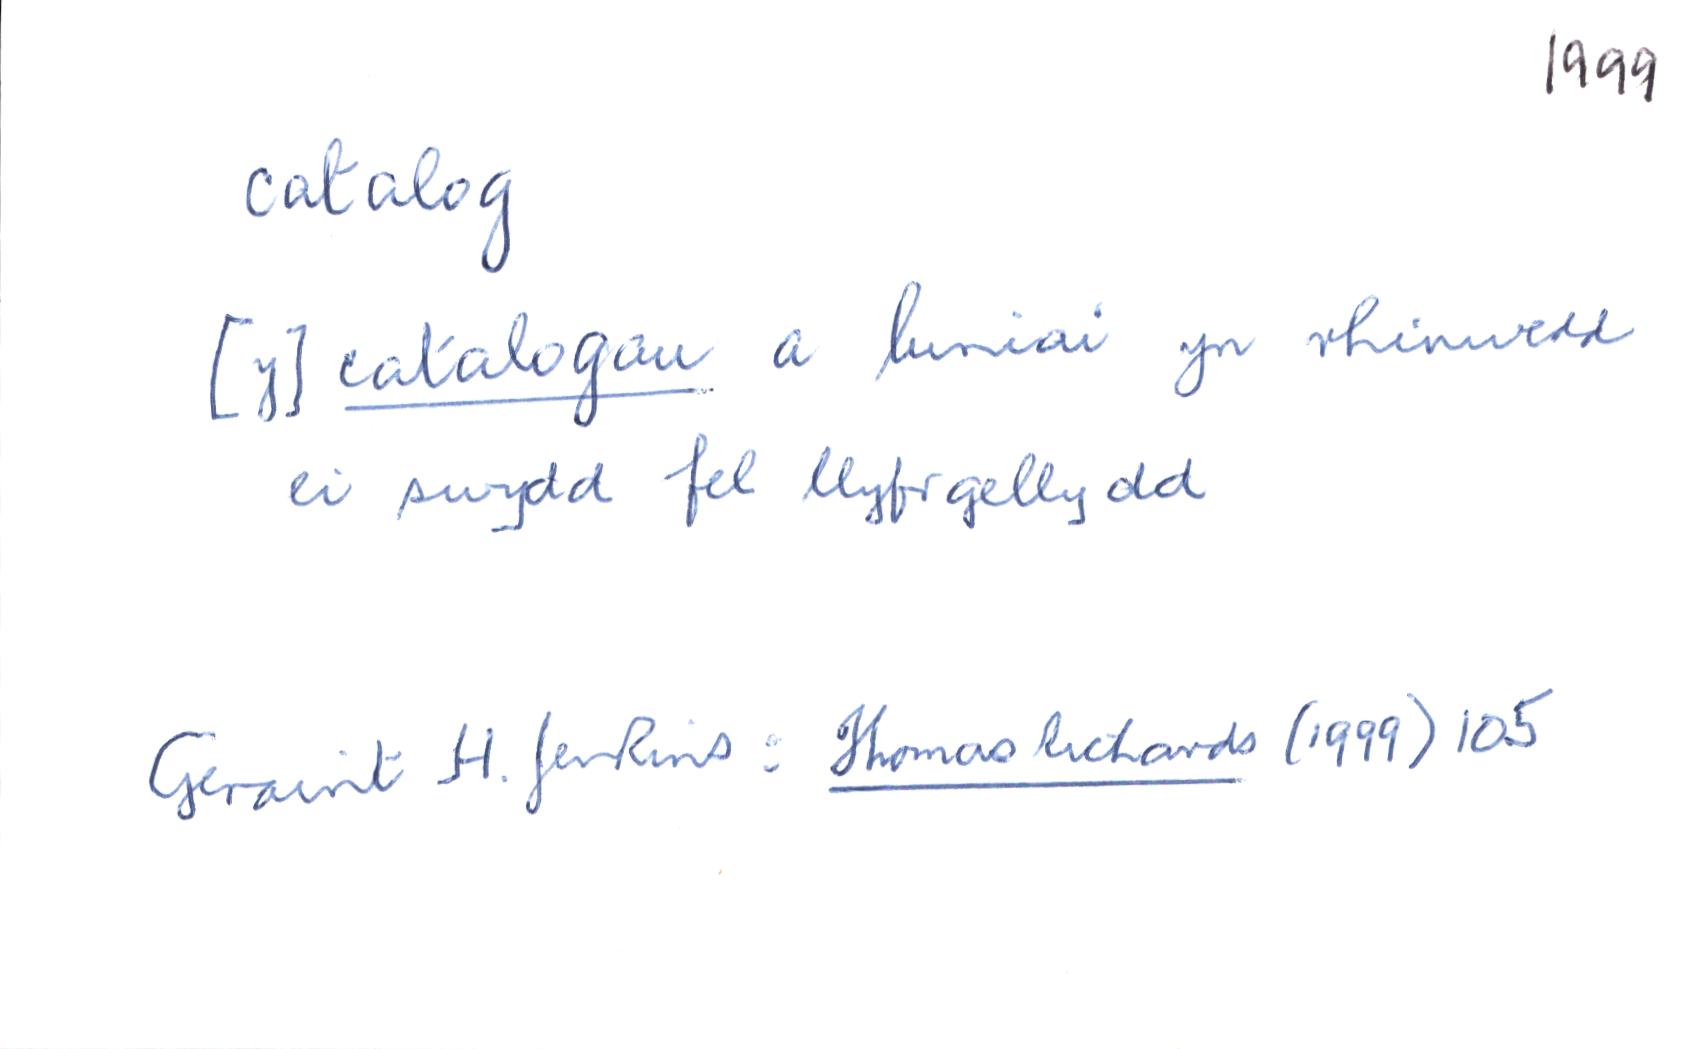 1999
catalog
[y] catalogau a luniai yn rhinwedd
ei swydd fel llyfrgellydd
Geraint H. Jenkins: Thomas Richards (1999) 105